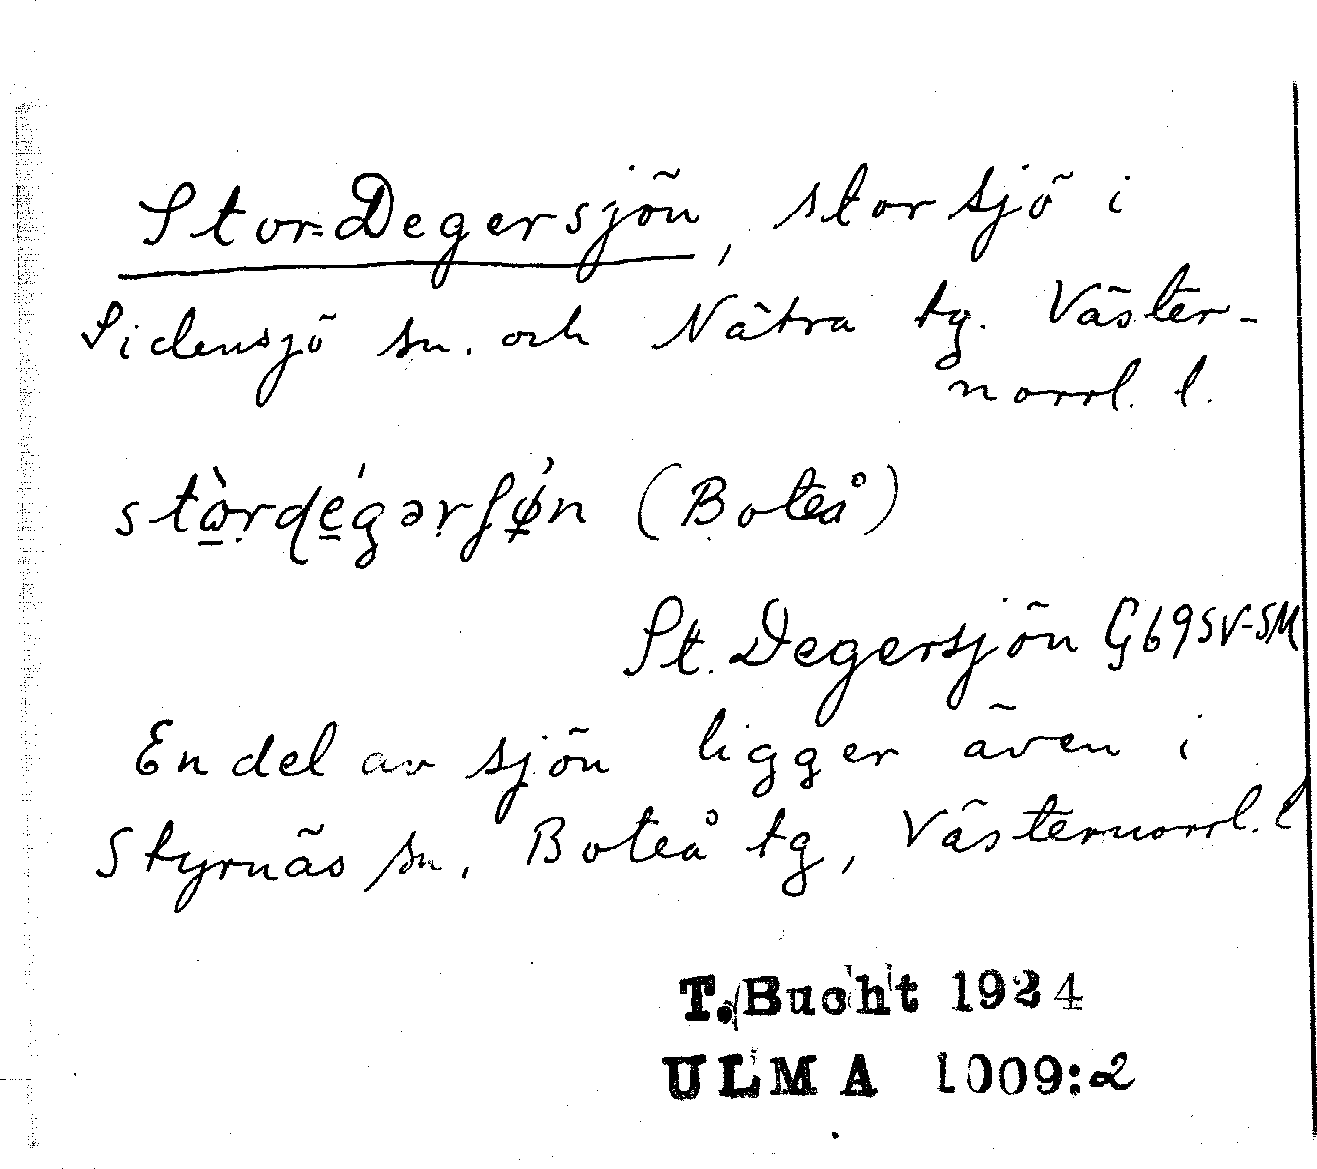 Stor-Degersjön, stor sjö i
Sidensjö sn. och Nätra tg. Väster-
norrl. l.
(Boteå)
St. Degersjön G69SV-SM
En del av sjön ligger även i
Styrnäs sn. Boteå tg, Västernorrl. l
T. Bucht 1924
ULMA 1009:2